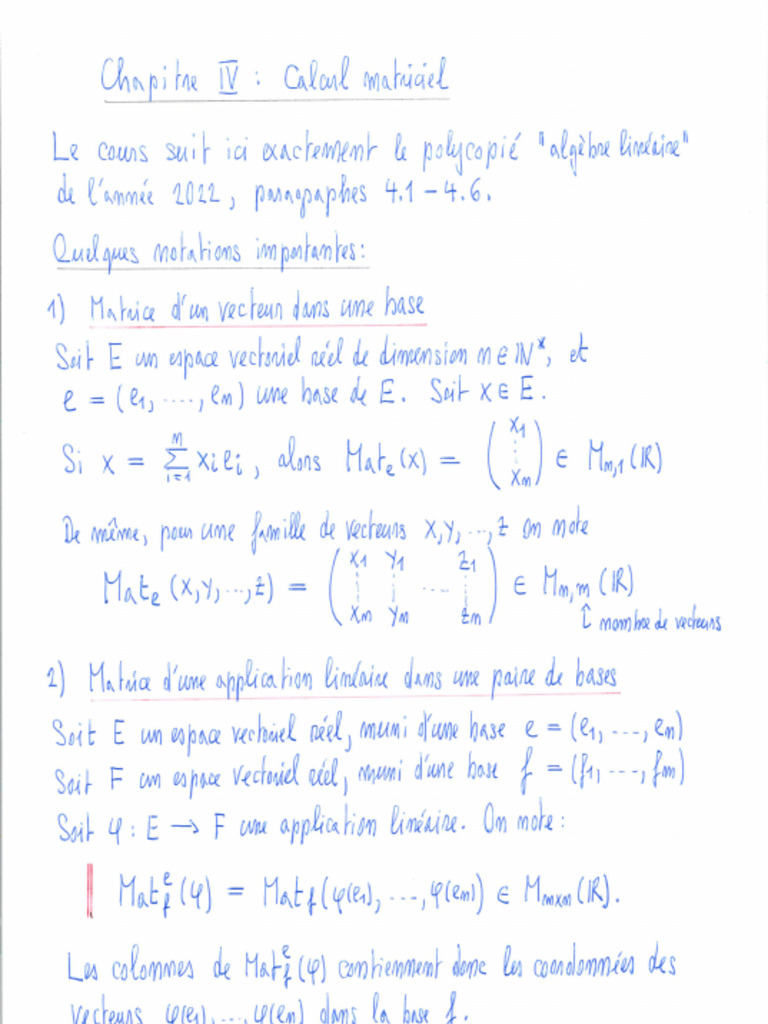 Chapitre IV : Calcul matriciel
Le cours suit ici exactement le polycopié "algèbre linéaire"
de l'année 2022, paragraphes 4.1 – 4.6.
Quelques notations importantes :
1) Matrice d'un vecteur dans une base
Soit E un espace vectoriel réel de dimension n ∈ ℕ*, et
e = (e₁, ...., eₙ) une base de E. Soit x ∈ E.
Si x = ∑ⁿᵢ₌₁ xᵢeᵢ, alors Matₑ(x) = (x₁ ⋮ xₙ) ∈ Mₙ,₁(ℝ)
De même, pour une famille de vecteurs x, y, ..., z on note
Matₑ(x, y, ..., z) = (x₁ y₁ z₁ ⋮ ⋮ ... ⋮ xₙ yₙ zₙ) ∈ Mₙ,ₘ(ℝ)
↑ nombre de vecteurs
2) Matrice d'une application linéaire dans une paire de bases
Soit E un espace vectoriel réel, muni d'une base e = (e₁, ..., eₙ)
Soit F un espace vectoriel réel, muni d'une base f = (f₁, ..., fₘ)
Soit φ : E → F une application linéaire. On note :
Mat_f^e(φ) = Mat_f(φ(e₁), ..., φ(eₙ)) ∈ Mₘₓₙ(ℝ).
Les colonnes de Mat_f^e(φ) contiennent donc les coordonnées des
vecteurs φ(e₁), ..., φ(eₙ) dans la base f.